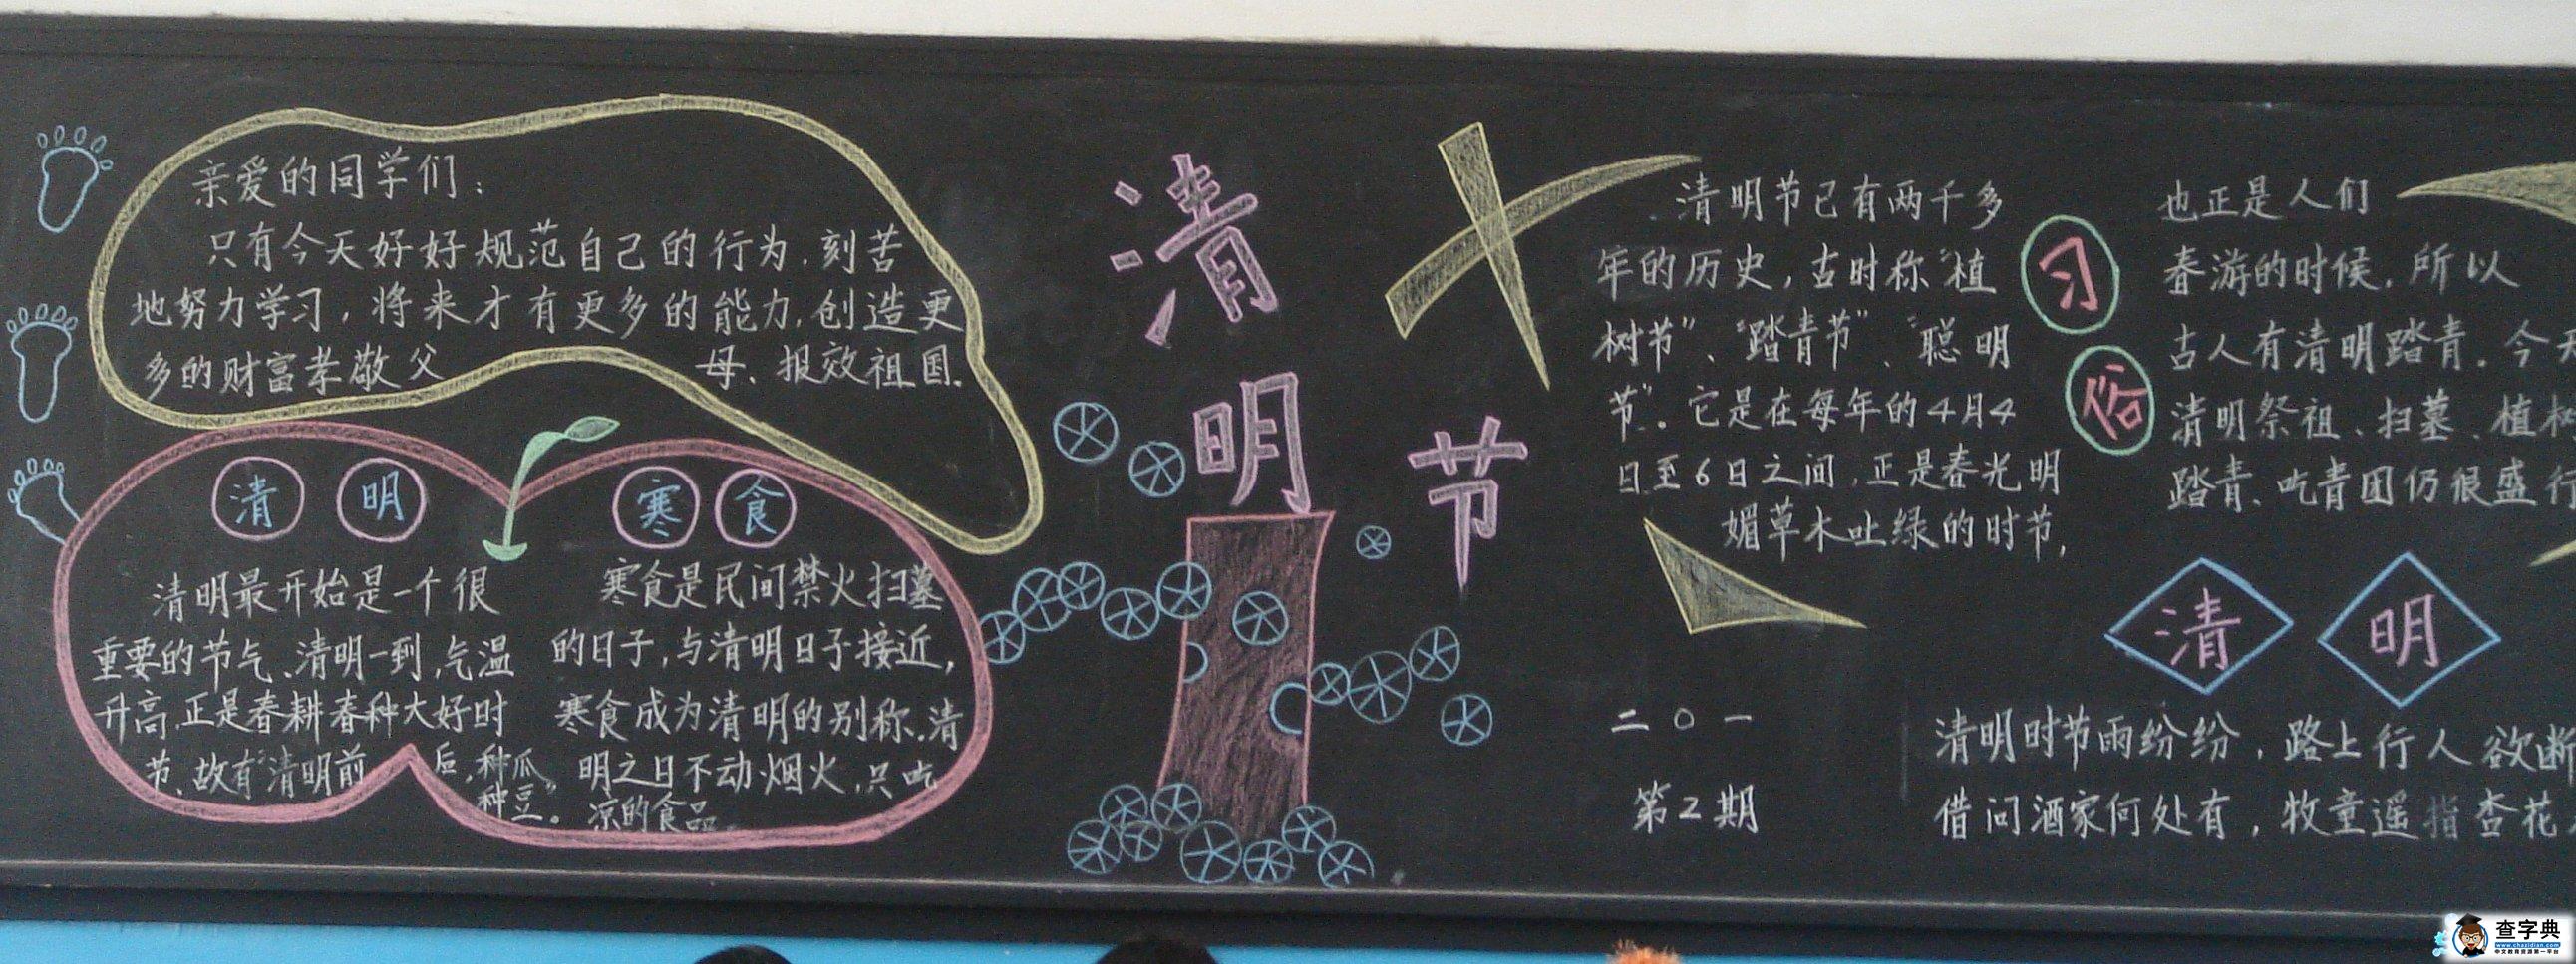 亲爱的同学们：
只有今天好好规范自己的行为，刻苦
地努力学习，将来才有更多的能力，创造更
多的财富孝敬父母、报效祖国。
清明
清明最开始是一个很
重要的节气、清明一到，气温
升高，正是春耕春种大好时
节、故有“清明前后，种瓜
种豆”。
寒食
寒食是民间禁火扫墓
的日子，与清明日子接近，
寒食成为清明的别称，清
明之日不动烟火，只吃
凉的食品
清明节
清明节已有两千多
年的历史，古时称“植
树节”、“踏青节”、“聪明
节”。它是在每年的4月4
日至6日之间，正是春光明
媚草木吐绿的时节，
二〇一
第2期
习俗
也正是人们
春游的时候，所以
古人有清明踏青。今天
清明祭祖、扫墓、植树
踏青、吃青团仍很盛行
清明
清明时节雨纷纷，路上行人欲断
借问酒家何处有，牧童遥指杏花
查字典
www.chazidian.com